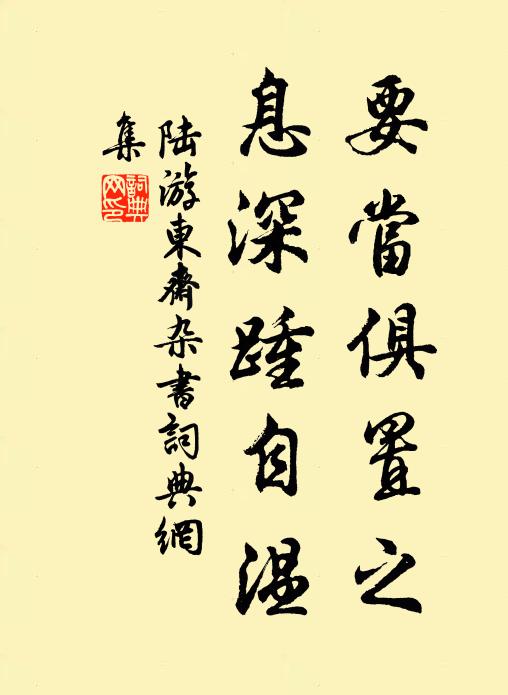 要當俱置之
息深踵自温
陸游東齋杂書詞典網
集
詞典網印